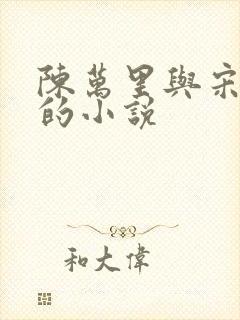 陳萬里與宋
的小説
和大偉